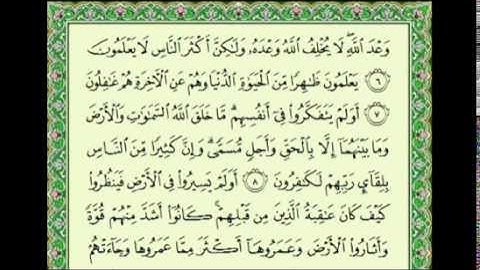 وَعْدَ ٱللَّهِ لَا يُخْلِفُ ٱللَّهُ وَعْدَهُۥ وَلَٰكِنَّ أَكْثَرَ ٱلنَّاسِ لَا يَعْلَمُونَ
٦ يَعْلَمُونَ ظَٰهِرًا مِّنَ ٱلْحَيَوٰةِ ٱلدُّنْيَا وَهُمْ عَنِ ٱلْءَاخِرَةِ هُمْ غَٰفِلُونَ
٧ أَوَلَمْ يَتَفَكَّرُوا۟ فِىٓ أَنفُسِهِم مَّا خَلَقَ ٱللَّهُ ٱلسَّمَٰوَٰتِ وَٱلْأَرْضَ
وَمَا بَيْنَهُمَآ إِلَّا بِٱلْحَقِّ وَأَجَلٍ مُّسَمًّى وَإِنَّ كَثِيرًا مِّنَ ٱلنَّاسِ
بِلِقَآئِ رَبِّهِمْ لَكَٰفِرُونَ ٨ أَوَلَمْ يَسِيرُوا۟ فِى ٱلْأَرْضِ فَيَنظُرُوا۟
كَيْفَ كَانَ عَٰقِبَةُ ٱلَّذِينَ مِن قَبْلِهِمْ كَانُوٓا۟ أَشَدَّ مِنْهُمْ قُوَّةً
وَأَثَارُوا۟ ٱلْأَرْضَ وَعَمَرُوهَآ أَكْثَرَ مِمَّا عَمَرُوهَا وَجَآءَتْهُمْ